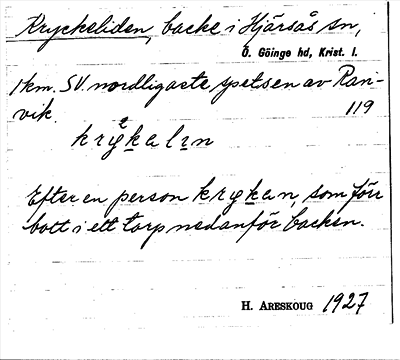 Kryckeliden, backe i Hjärsås sn,
Ö. Göinge hd, Krist. l.
1 km. SV. nordligaste spetsen av Ran-
vik. 119
krykalin
Efter en person krykan, som förr
bott i ett torp nedanför backen.
H. Areskoug 1927